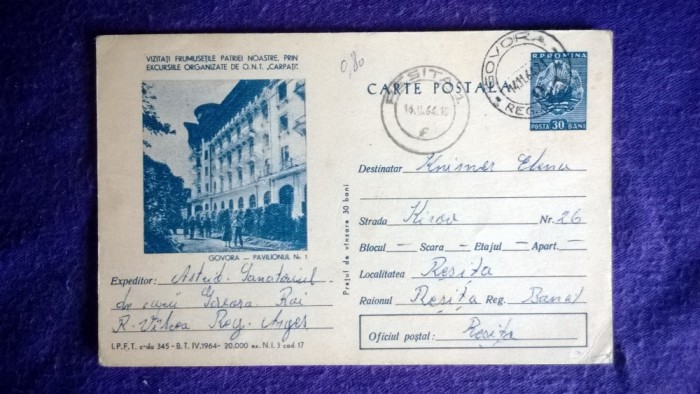 VIZITAȚI FRUMUSEȚILE PATRIEI NOASTRE, PRIN
EXCURSIILE ORGANIZATE DE O.N.T. „CARPAȚI”.
GOVORA — PAVILIONUL Nr. 1
Expeditor: Astrid. Sanatoriul
Govora. Rai
R. Vîlcea Reg. Argeș
I.P.F.T. c-da 345 - B.T. IV.1964 - 20.000 ex. N.I. 3 cod. 17
Prețul de vînzare 30 bani
0,80
CARTE POSTALA
REȘIȚA 1
GOVORA
REG.
R.P.ROMINA
POSTA 30 BANI
Destinatar Elena
Strada Kirov Nr. 26
Blocul — Scara — Etajul — Apart. —
Localitatea Reșița
Raionul Reșița Reg. Banat
Oficiul poștal: Reșița